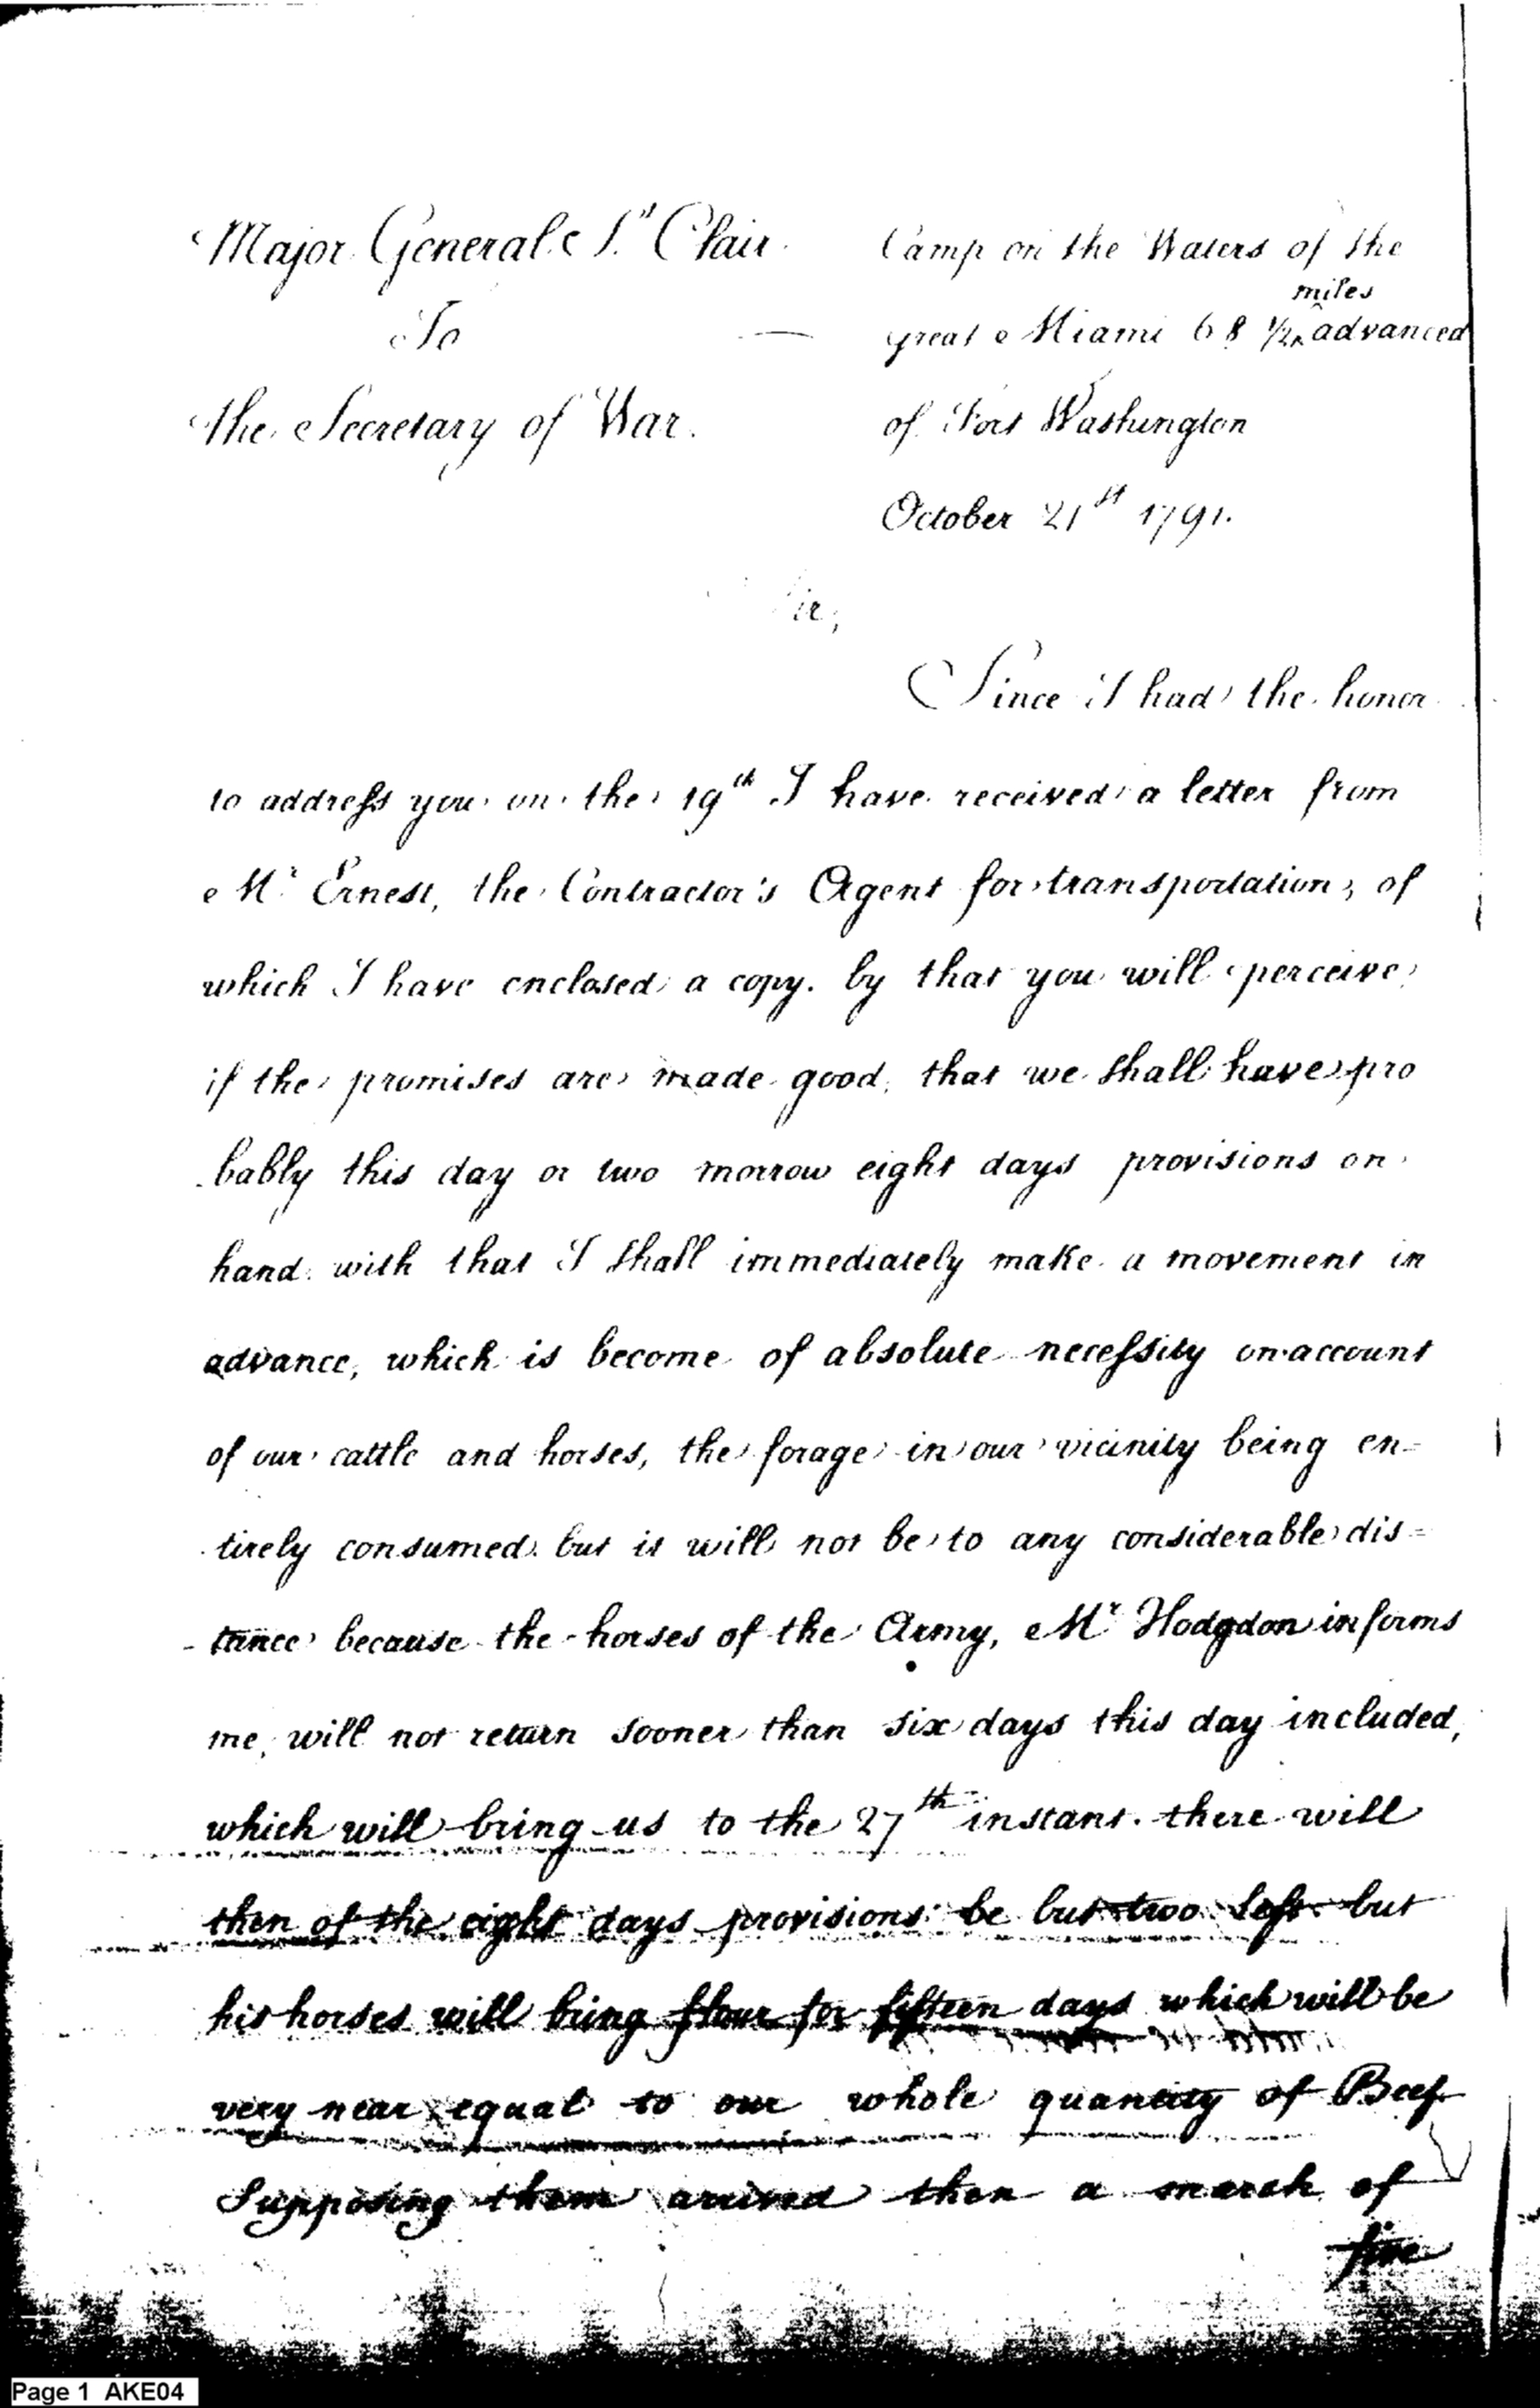 Major General St Clair
To
The Secretary of War.
Camp on the Waters of the
miles
great Miami 68 1/2 ^ advanced
of Fort Washington
October 21st 1791.
Sir,
Since I had the honor
to address you on the 19th I have received a letter from
Mr Ernest, the Contractor's Agent for transportation, of
which I have enclosed a copy. by that you will perceive
if the promises are made good, that we shall have pro
bably this day or two morrow eight days provisions on
hand. with that I shall immediately make a movement in
advance, which is become of absolute necessity on account
of our cattle and horses, the forage in our vicinity being en-
tirely consumed. but it will not be to any considerable dis=
tance because the horses of the Army, Mr Hodgdon informs
me, will not return sooner than six days this day included,
which will bring us to the 27th instant. there will
then of the eight days provisions be but two left. but
his horses will bring flour for fifteen days which will be
very near equal to our whole quantity of Beef
Supposing them arrived then a march of
five
Page 1 AKE04